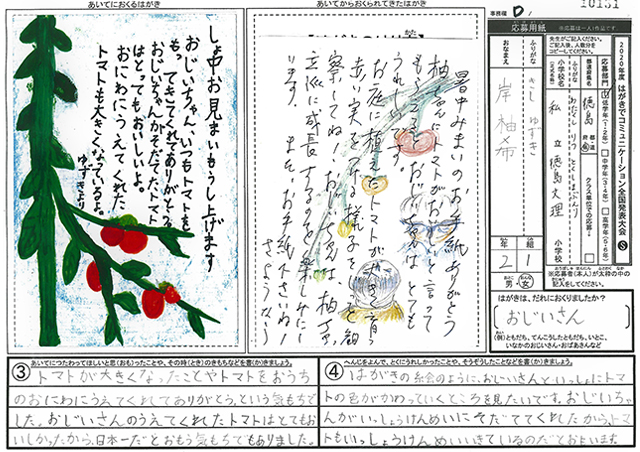 あいてにおくるはがき
しょ中お見まいもうし上げます
おじいちゃん、いつもトマトを
もってきてくれてありがとう。
おじいちゃんがそだてたトマト
はとってもおいしいよ。
おにわにうえてくれた
トマトも大きくなっているよ。
ゆずきより
あいてからおくられてきたはがき
暑中みまいのお手紙ありがとう
柚希ちゃんがトマトがおいしいと言って
もらえるとおじいさんはとても
うれしいです。
お庭に植えたトマトが大きく育ち
赤い実をつけ様子をしっかり観
察してね おじいさんは柚希が
立派に成長するのを楽しみにして
います。またお手紙下さいね!
さようなら
事務欄 D
10131
応募用紙
※応募は一人1作品です
先生がご記入ください。
ご記入後、人数分を
コピーしてください。
2020年度 はがきでコミュニケーション全国発表大会 S
応募部門
低学年(1・2年)
中学年(3・4年)
高学年(5・6年)
都道府県名
徳島
都・道
府・県
クラス単位での応募
小学校名
私立徳島文理
小学校
ふりがな
おなまえ
きし ゆずき
岸 柚希
年
組
2
1
男・女
※応募者(本人)が太枠の中の
記入をしてください。
はがきは、だれにおくりましたか?
おじいさん
(例)ともだち、てんこうしたともだち、いとこ、
いなかのおじいさん・おばあさんなど
③
あいてにつたわってほしいと思(おも)ったことや、その時(とき)のきもちなどを書(か)きましょう。
トマトが大きくなったことやトマトをおうち
のおにわにうえてくれてありがとう。という気もちで
した。おじいさんのうえてくれたトマトはとてもお
いしかったから、日本一だとおもう気もちでもありました。
④
へんじをよんで、とくにうれしかったことや、そうぞうしたことなどを書(か)きましょう。
はがきの絵のように、おじいさんといっしょにトマ
トの色がかわっていくところを見たいです。おじいちゃ
んがいっしょうけんめいにそだててくれたから、トマ
トもいっしょうけんめいいきているのだとおもいます。